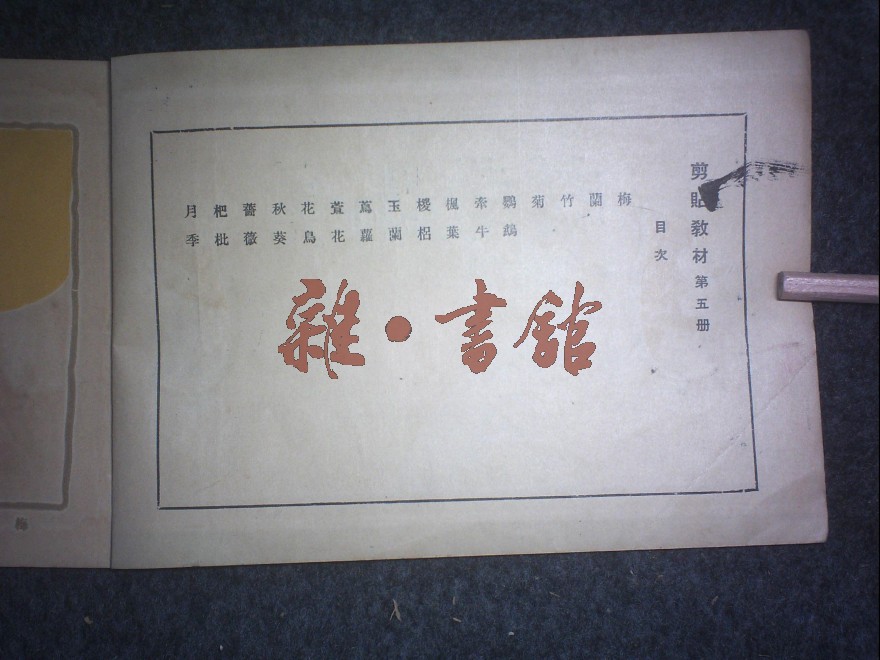 剪貼教材 第五册
目次
梅
蘭
竹
菊
鸚鵡
牽牛
楓葉
椶梠
玉蘭
蔦蘿
萱花
花鳥
秋葵
薔薇
杷枇
月季
雜·書館